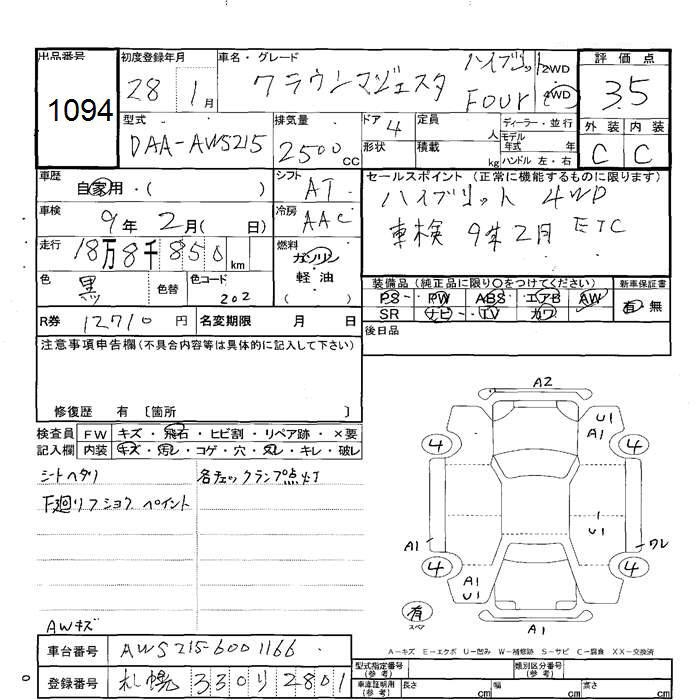 出品番号 初度登録年月 車名・グレード 評価点
1094 28 1月 クラウンマジェスタ ハイブリット FOUR 2WD 4WD 3.5
型式 排気量 ドア 4 定員 人 ディーラー・並行
DAA-AWS215 2500cc 形状 積載 kg モデル年式 年 ハンドル 左・右
外装 内装
C C
車歴 自家用・( ) シフト AT セールスポイント (正常に機能するものに限ります)
車検 9年2月(日) 冷房 AAC ハイブリット 4WD
走行 18万8千850km 燃料 ガソリン 軽油 ( ) 車検 9年2月 ETC
色 黒 色替 色コード 202 装備品 (純正品に限り○をつけてください) 新車保証書
PS PW ABS エアB AW 有・無
R券 12710円 名変期限 月 日 SR ナビ TV カワ
注意事項申告欄(不具合内容等は具体的に記入して下さい) 後日品
修復歴 有 〔箇所 〕
検査員 FW キズ・飛石・ヒビ割・リペア跡・×要
記入欄 内装 キズ・汚レ・コゲ・穴・スレ・キレ・破レ
シートヘタリ 各チェックランプ点灯
下廻リフショク ペイント
A2
U1
A1
4 4
U1
A1 ワレ
4 4
A1
U1
有
スペア
A1
AWキズ
A−キズ E−エクボ U−凹み W−補修跡 S−サビ C−腐食 XX−交換済
車台番号 AWS215-6001166
登録番号 札幌 330り2801
型式指定番号 (参考) 類別区分番号 (参考)
車庫証明用 (参考) 長さ cm 幅 cm 高さ cm